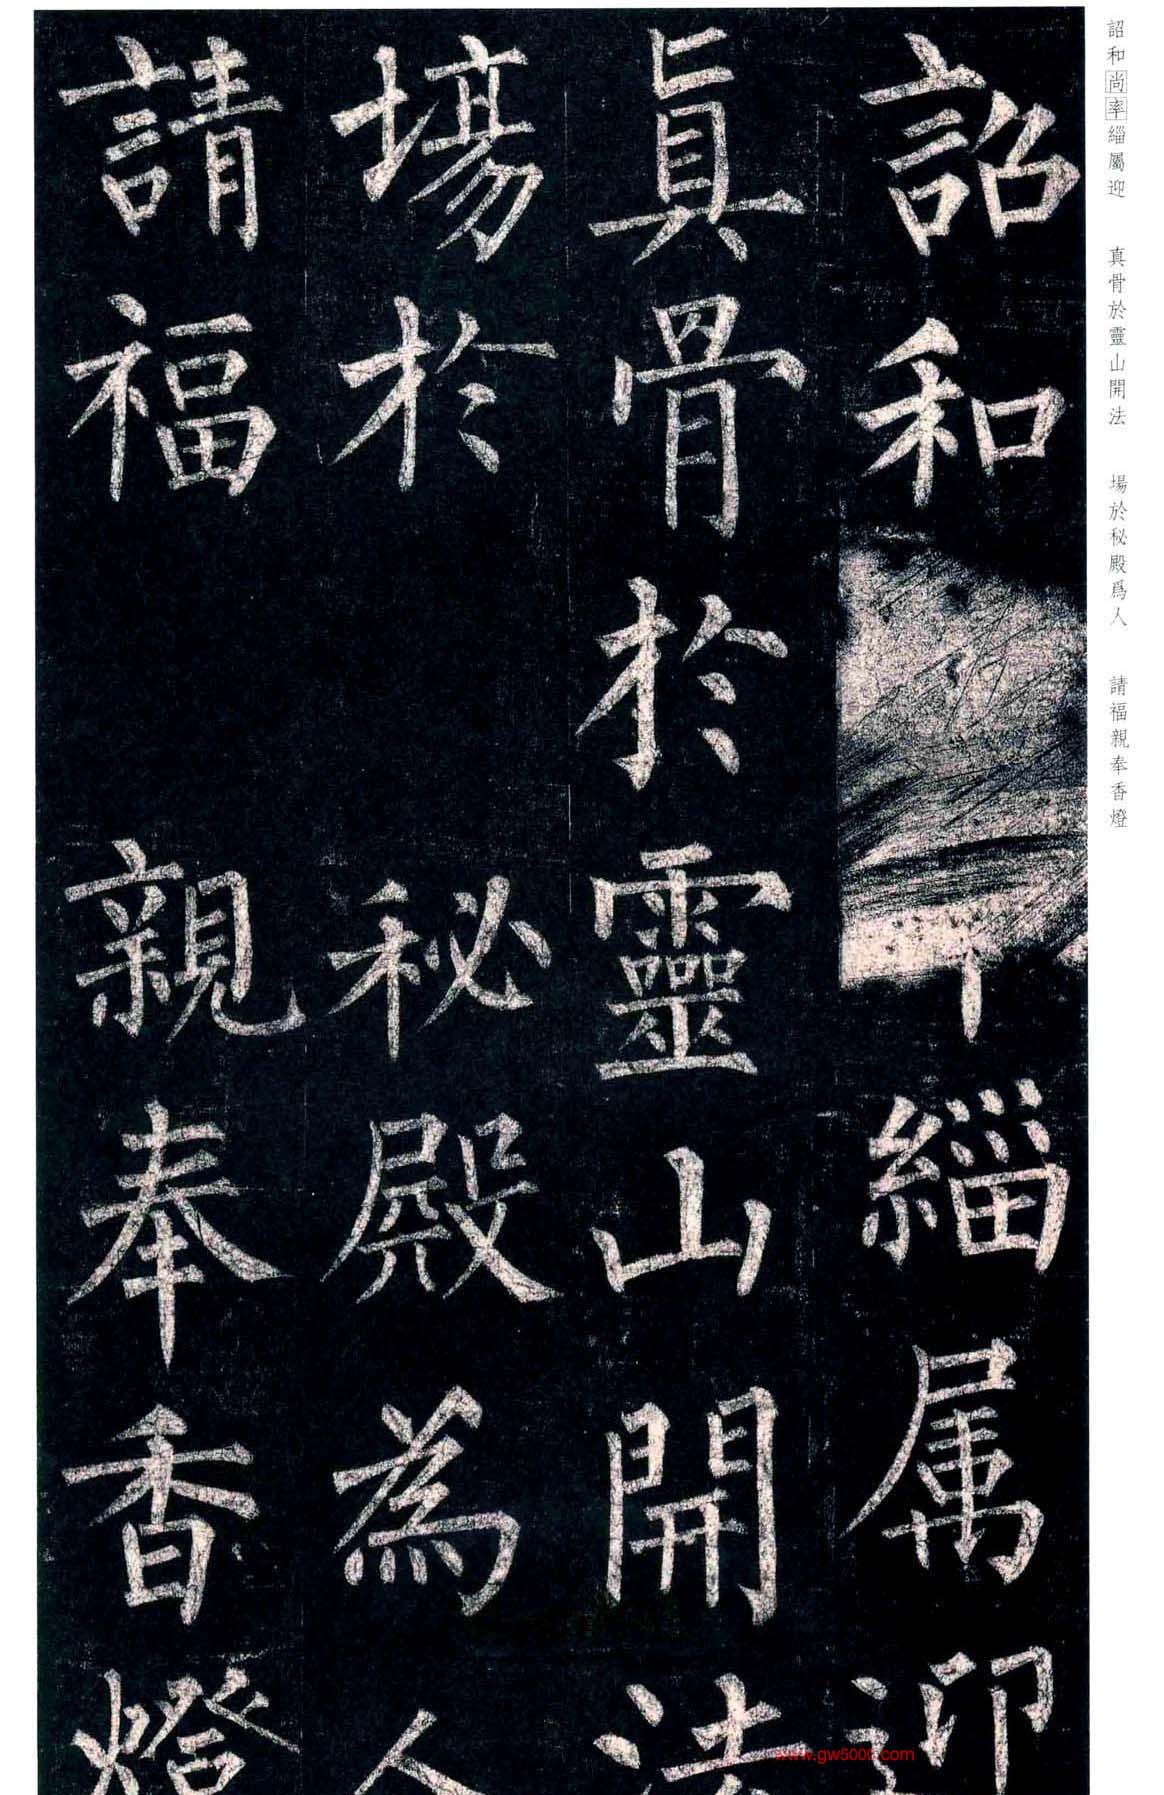 詔和緇屬迎
真骨於靈山開法
場於秘殿為人
請福親奉香燈
詔和尚率緇屬迎 真骨於靈山開法 場於秘殿爲人 請福親奉香燈
www.gw5000.com